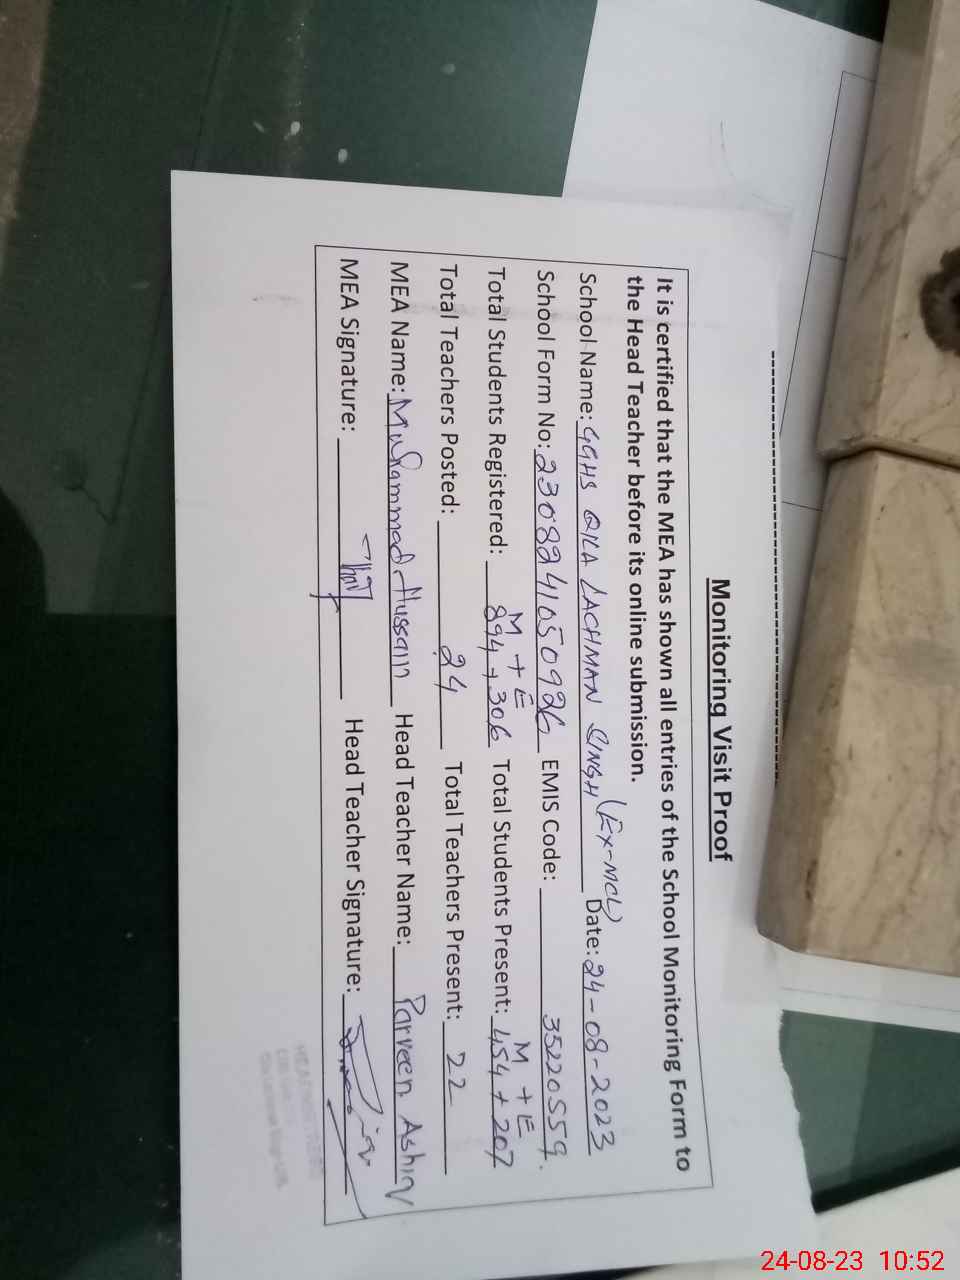 Monitoring Visit Proof
It is certified that the MEA has shown all entries of the School Monitoring Form to
the Head Teacher before its online submission.
School Name: GGHS QILA LACHMAN SINGH (Ex-MCL) Date: 24-08-2023
School Form No: 2308241050926 EMIS Code: 35220559.
M + E M + E
Total Students Registered: 894 + 306 Total Students Present: 454 + 207
Total Teachers Posted: 24 Total Teachers Present: 22
MEA Name: Muhammad Hussain Head Teacher Name: Parveen Ashiq
MEA Signature: Head Teacher Signature:
24-08-23 10:52